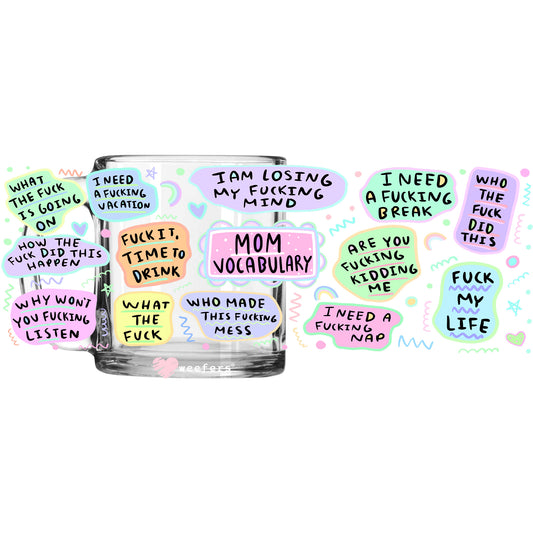 WHAT
THE FUCK
IS GOING
ON
I NEED
A FUCKING
VACATION
I AM LOSING
MY FUCKING
MIND
I NEED
A FUCKING
BREAK
WHO
THE
FUCK
DID
THIS
HOW THE
FUCK DID THIS
HAPPEN
FUCK IT,
TIME TO
DRINK
MOM
VOCABULARY
ARE YOU
FUCKING
KIDDING
ME
FUCK
MY
LIFE
WHY WON'T
YOU FUCKING
LISTEN
WHAT
THE
FUCK
WHO MADE
THIS FUCKING
MESS
I NEED A
FUCKING
NAP
weefers